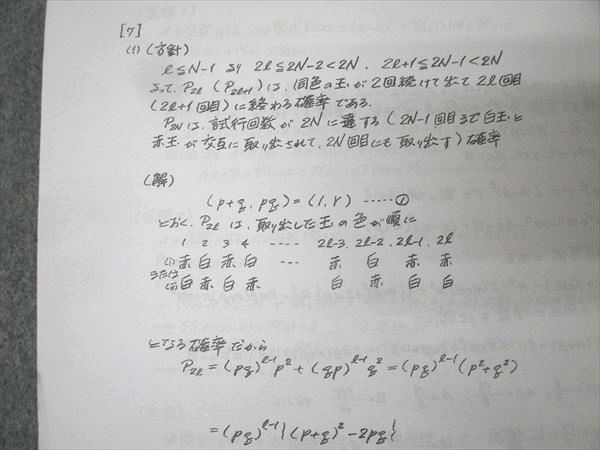 [7]
(1) (方針)
l≦N-1 より 2l≦2N-2<2N, 2l+1≦2N-1<2N
よって, P2l (P2l+1) は, 同色の玉が2回続けて出て2l回目
(2l+1回目) に終わる確率である.
P2N は, 試行回数が 2N に達する (2N-1回目まで白玉と
赤玉が交互に取り出されて, 2N回目にも取り出す) 確率
(解)
(p+q, pq) = (1, r) ‥‥‥①
とおく. P2l は, 取り出した玉の色が順に
1 2 3 4 ---- 2l-3, 2l-2, 2l-1, 2l
(i) 赤 白 赤 白 --- 赤 白 赤 赤
または
(ii) 白 赤 白 赤 白 赤 白 白
となる確率だから
P2l = (pq)^{l-1} p² + (qp)^{l-1} q² = (pq)^{l-1} (p²+q²)
= (pq)^{l-1} {(p+q)² - 2pq}